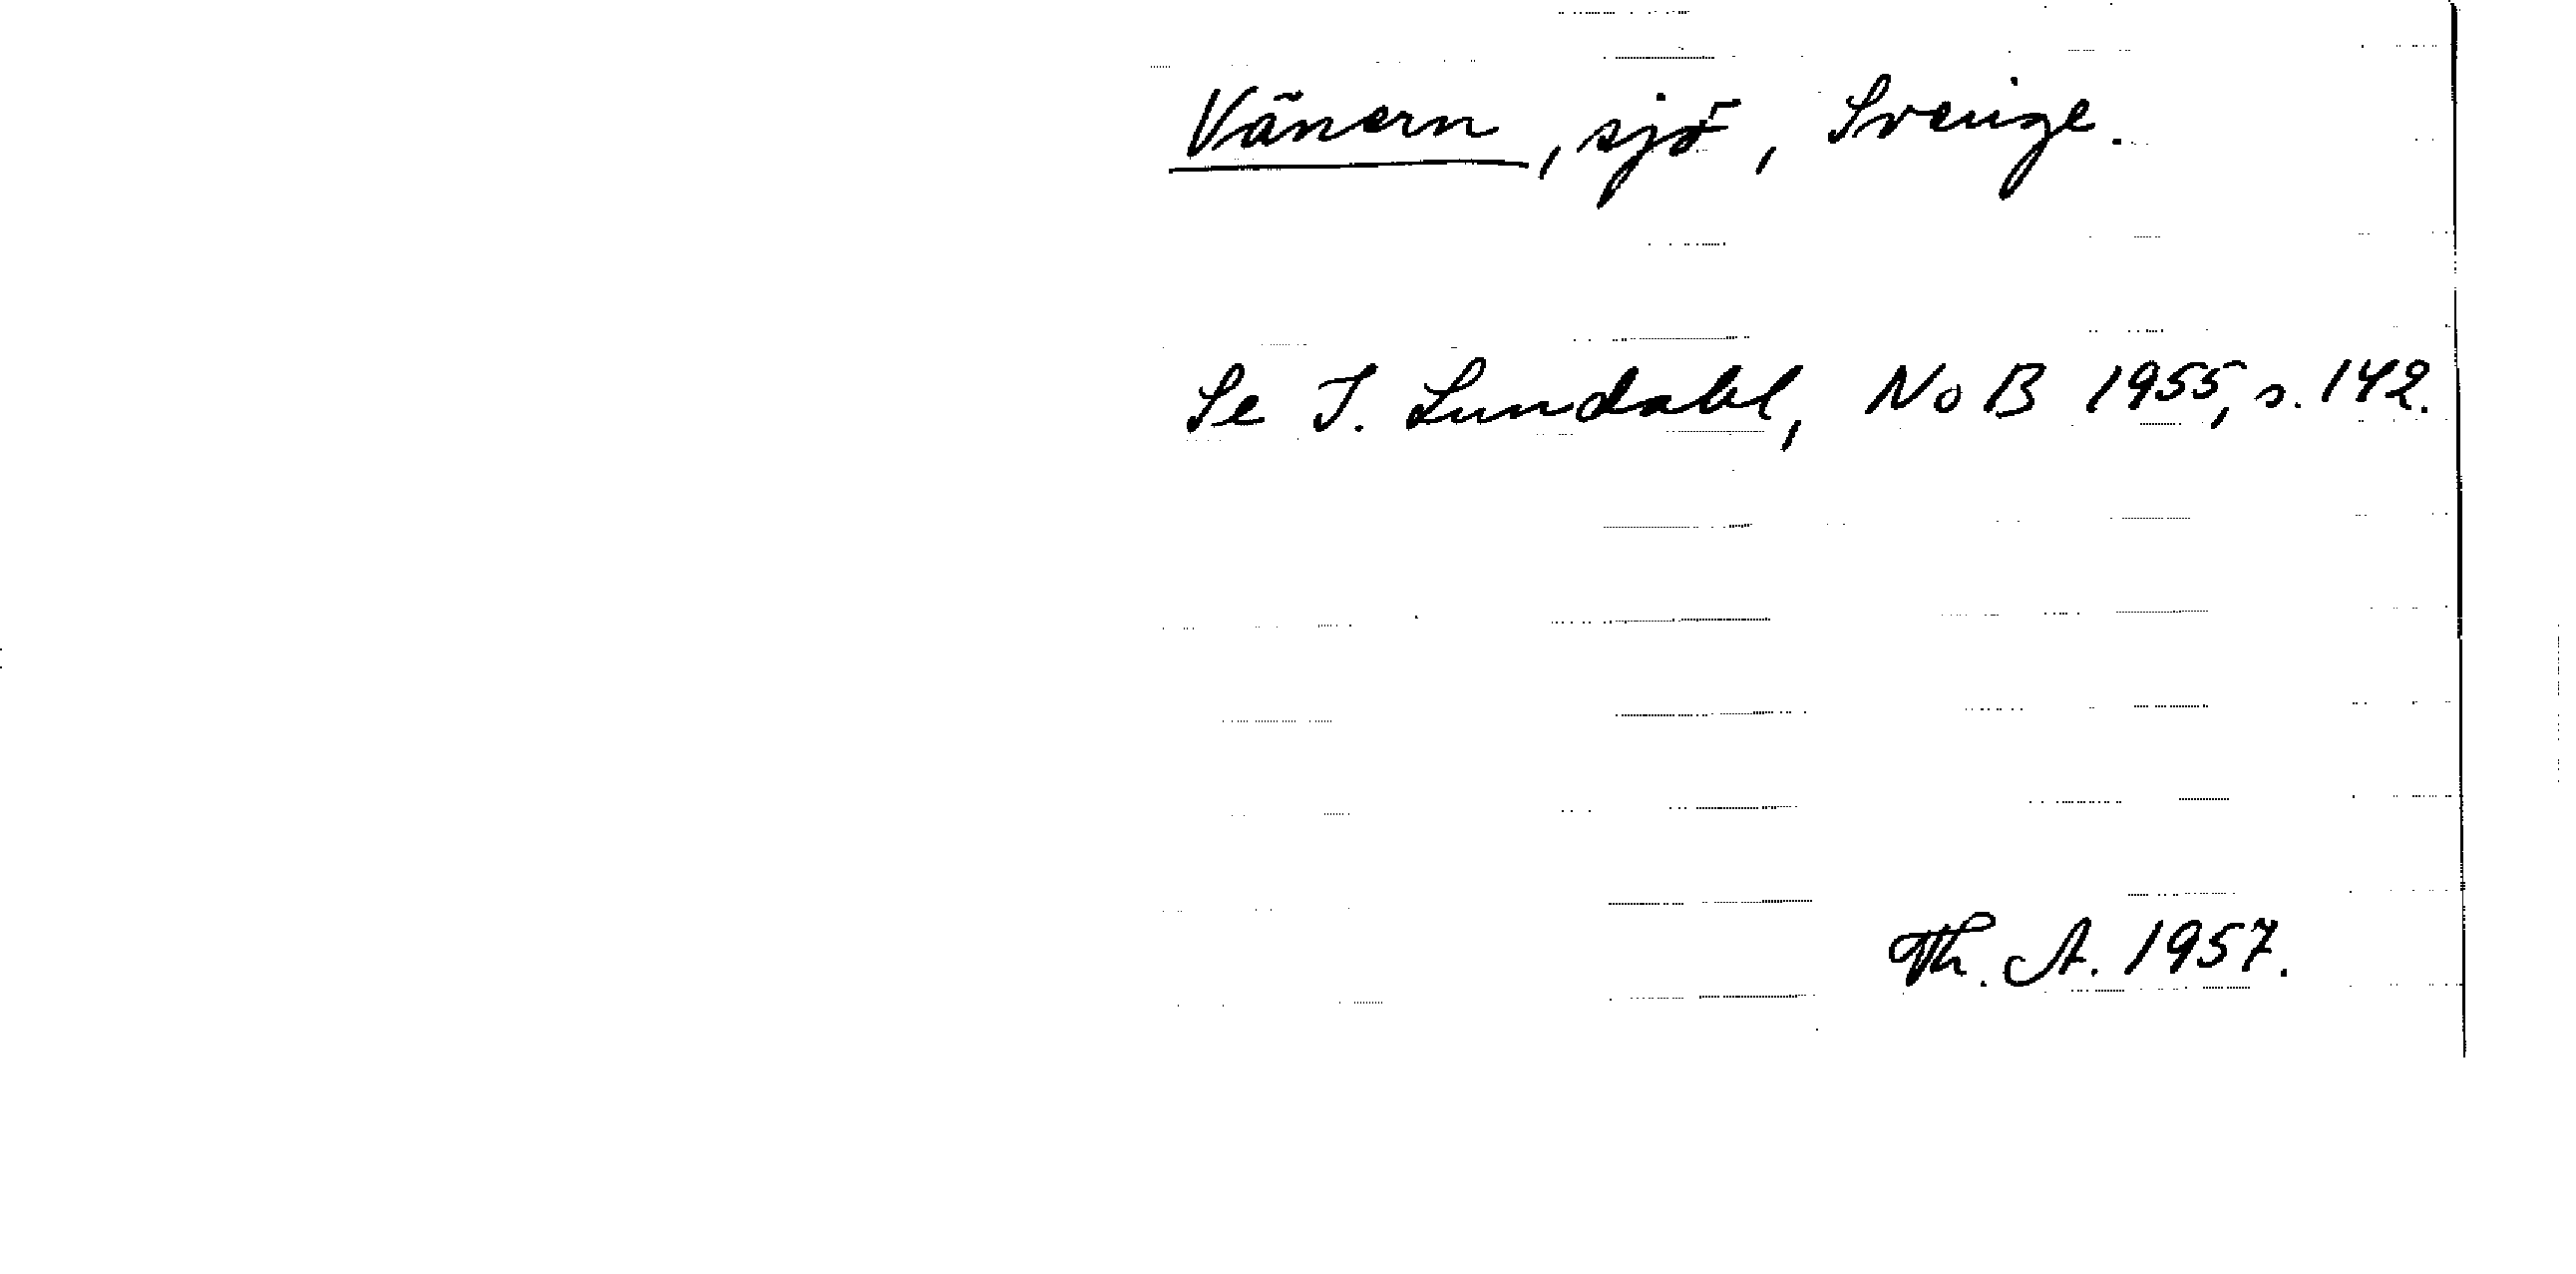 Vänern, sjö, Sverige.
Se I. Lundahl, NoB 1955, s. 142.
Th. A. 1957.